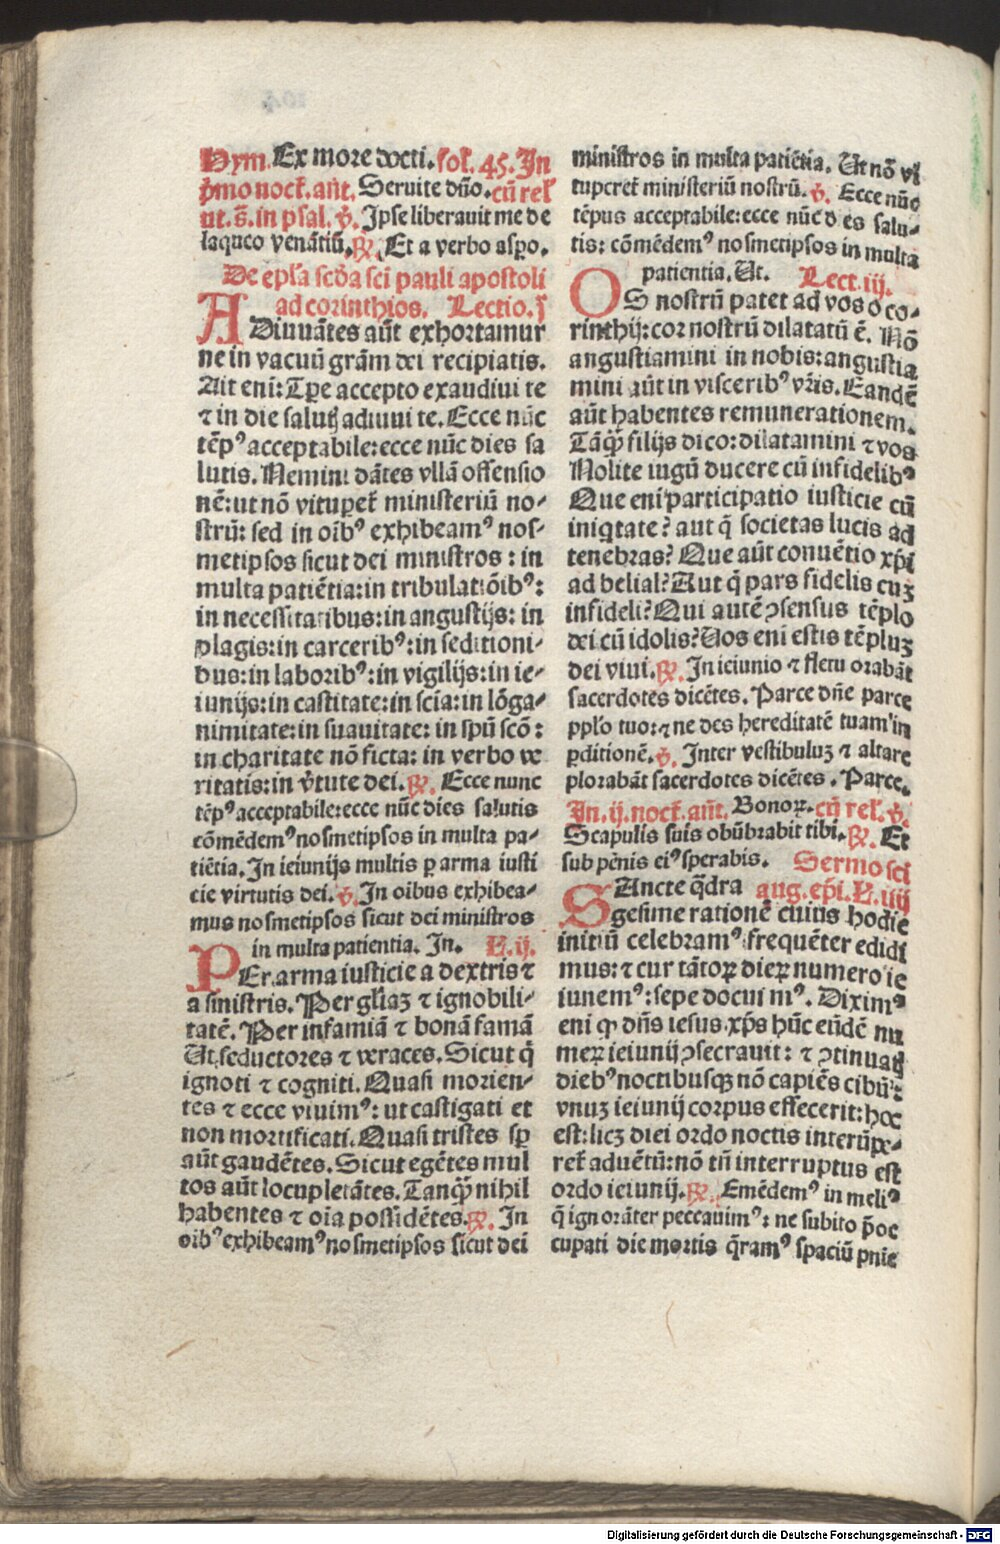 Hym. Ex more docti. fol. 45. In
pͥmo noct. ānt. Seruite dño. cū rel̄
ut. s̄. in psal. ℣. Ipse liberauit me de
laqueo venātiū. ℟. Et a verbo asꝑo.
De epl̄a scd̄a sci pauli apostoli
ad corinthios. Lectio. j
ADiuuātes aūt exhortamur
ne in vacuū grām dei recipiatis.
Ait eni: Tꝑe accepto exaudiui te
⁊ in die salutꝭ adiuui te. Ecce nūc
tēpꝰ acceptabile: ecce nūc dies sa
lutis. Nemini dātes vllā offensio
nē: ut nō vituꝑet̄ ministeriū no-
strū: sed in oībꝰ exhibeamꝰ nos-
metipsos sicut dei ministros: in
multa patiētia: in tribulatiōibꝰ:
in necessitatibus: in angustijs: in
plagis: in carceribꝰ: in seditioni-
bus: in laboribꝰ: in vigilijs: in ie-
iunijs: in castitate: in scīa: in lōga-
nimitate: in suauitate: in spū scō:
in charitate nō ficta: in verbo ve
ritatis: in v̄tute dei. ℟. Ecce nunc
tēpꝰ acceptabile: ecce nūc dies salutis
cōmēdemꝰ nosmetipsos in multa pa-
tiētia. In ieiunijs multis ꝑ arma iusti
cie virtutis dei. ℣. In oibus exhibea-
mus nosmetipsos sicut dei ministros
in multa patientia. In. L. ij.
PEr arma iusticie a dextris ⁊
a sinistris. Per gl̄iaꝫ ⁊ ignobili-
tatē. Per infamiā ⁊ bonā famā
Ut seductores ⁊ veraces. Sicut q̄
ignoti ⁊ cogniti. Quasi morien-
tes ⁊ ecce viuimꝰ: ut castigati et
non mortificati. Quasi tristes sꝑ
aūt gaudētes. Sicut egētes mul
tos aūt locupletātes. Tanqꝫ̄ nihil
habentes ⁊ oīa possidētes. ℟. In
oibꝰ exhibeamꝰ nosmetipsos sicut dei
ministros in multa patiētia. Ut nō vi
tuperet̄ ministeriū nostrū. ℣. Ecce nūc
tēpus acceptabile: ecce nūc dies salu-
tis: cōmēdemꝰ nosmetipsos in multa
patientia. Ut. Lect. iij.
OS nostrū patet ad vos o co-
rinthij: cor nostrū dilatatū ē. Nō
angustiamini in nobis: angustia
mini aūt in visceribꝰ vr̄is. Eandē
aūt habentes remunerationem.
Tāqꝫ̄ filijs dico: dilatamini ⁊ vos
Nolite iugū ducere cū infidelibꝰ
Que eni participatio iusticie cū
iniqtate? aut q̄ societas lucis ad
tenebras? Que aūt conuētio xp̄i
ad belial? Aut q̄ pars fidelis cuꝫ
infideli? Qui autē ꝯsensus tēplo
dei cū idolis? Uos eni estis tēpluꝫ
dei viui. ℟. In ieiunio ⁊ fletu orabāt
sacerdotes dicētes. Parce dñe parce
pplo tuo: ⁊ ne des hereditatē tuam in
ꝑditionē. ℣. Inter vestibuluꝫ ⁊ altare
plorabāt sacerdotes dicētes. Parce.
In. ij. noct. ānt. Bonoꝝ. cū rel̄. ℣.
Scapulis suis obūbrabit tibi. ℟. Et
sub pēnis eiꝰ sperabis. Sermo sci
SAncte q̄dra aug. ep̄i. L. iiij
gesime rationē cuius hodie
initiū celebramꝰ frequēter edidi
mus: ⁊ cur tātoꝝ dieꝝ numero ie
iunemꝰ: sepe docuimꝰ. Diximꝰ
eni qꝫ dñs iesus xp̄s hūc eūdē nu
meꝝ ieiunij ꝯsecrauit: ⁊ ꝯtinuatꝭ
diebꝰ noctibusqꝫ nō capiēs cibū:
vnuꝫ ieiunij corpus effecerit: hoc
est: licꝫ diei ordo noctis interūpe-
ret̄ aduētū: nō tn̄ interruptus est
ordo ieiunij. ℟. Emēdemꝰ in meliꝰ
q̄ ignorāter peccauimꝰ: ne subito p̄oc
cupati die mortis q̄ramꝰ spaciū pnīe
Digitalisierung gefördert durch die Deutsche Forschungsgemeinschaft - DFG